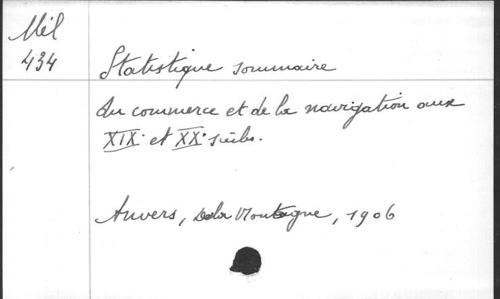 Mél
434
Statistique sommaire
du commerce et de la navigation aux
XIX. et XX. siècles.
Anvers, Dela Montagne, 1906